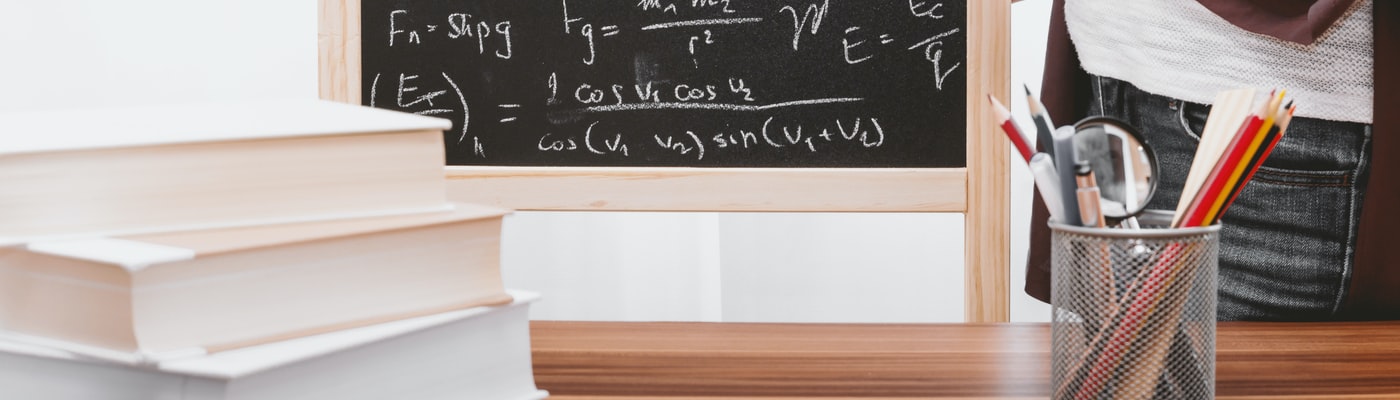 Fn = Slpg Fg = m1 m2 / r² E = / q
(E / )h = 2 cos v1 cos v2
cos(v1 v2) sin(v1+v2)